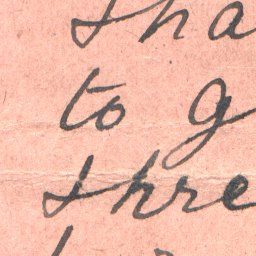 sha
to g
shre